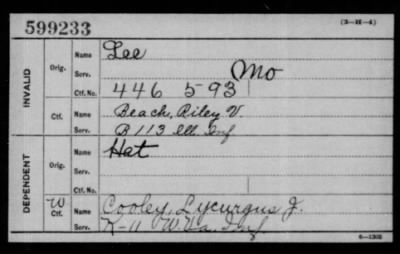 599233 (3—H—4)
INVALID
Orig. Name Lee
Serv. Mo
Ctf. No. 446 593
Ctf. Name Beach, Riley V.
Serv. B 113 Ill. Inf
DEPENDENT
Orig. Name Hat
Serv.
Ctf. No.
W Ctf. Name Cooley, Lycurgus J.
Serv. K-11 W.Va. Inf